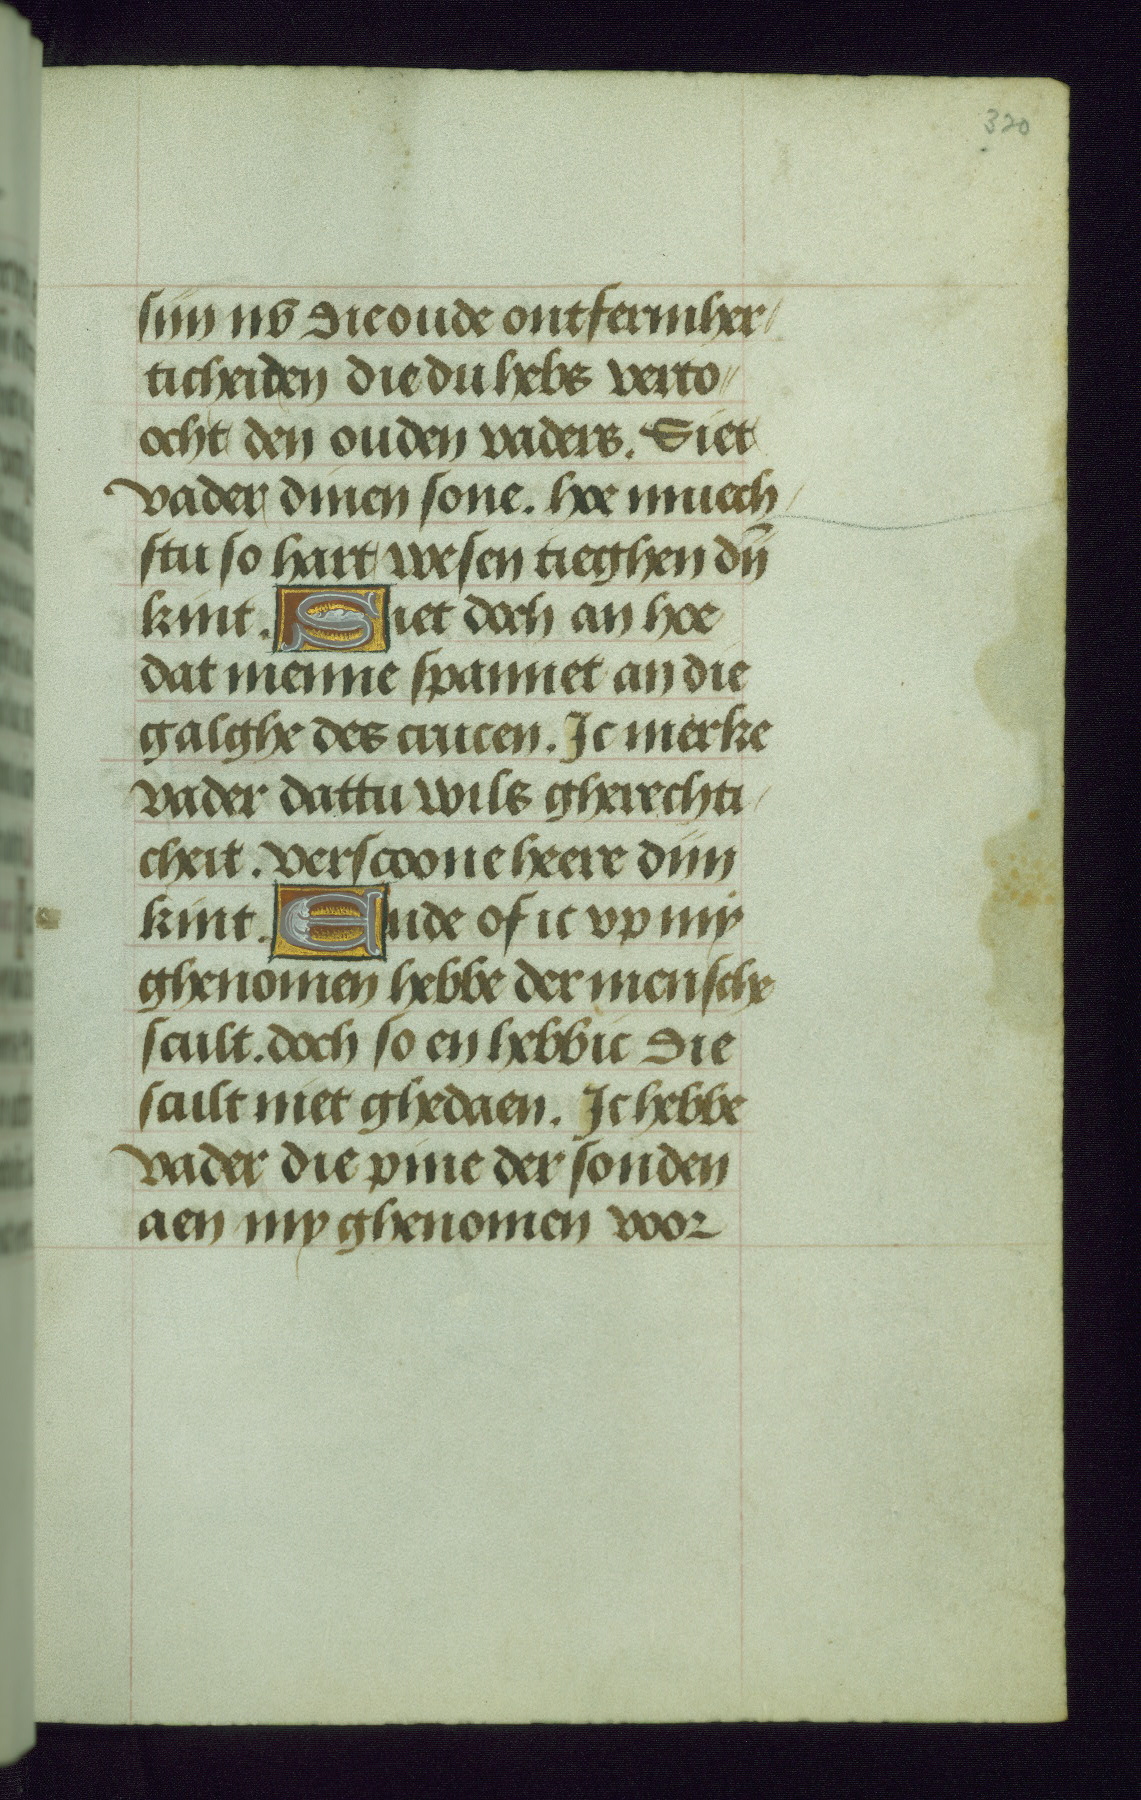 320
sijn nv Die oude ontfermher/
ticheiden die du hebs verto//
ocht den ouden vaders. Siet
vader dinen sone. hoe muech/
stu so hart wesen tieghen dijn̄
kint. Siet doch an hoe
dat menne spannet an die
galghe des crucen. Ic merke
vader dattu wils gherechti/
cheit. verscoone heere dijn
kint. Ende of ic vp mij
ghenomen hebbe der mensche
scult. doch so en hebbic Die
scult niet ghedaen. Ic hebbe
vader die pine der sonden
aen my ghenomen voor